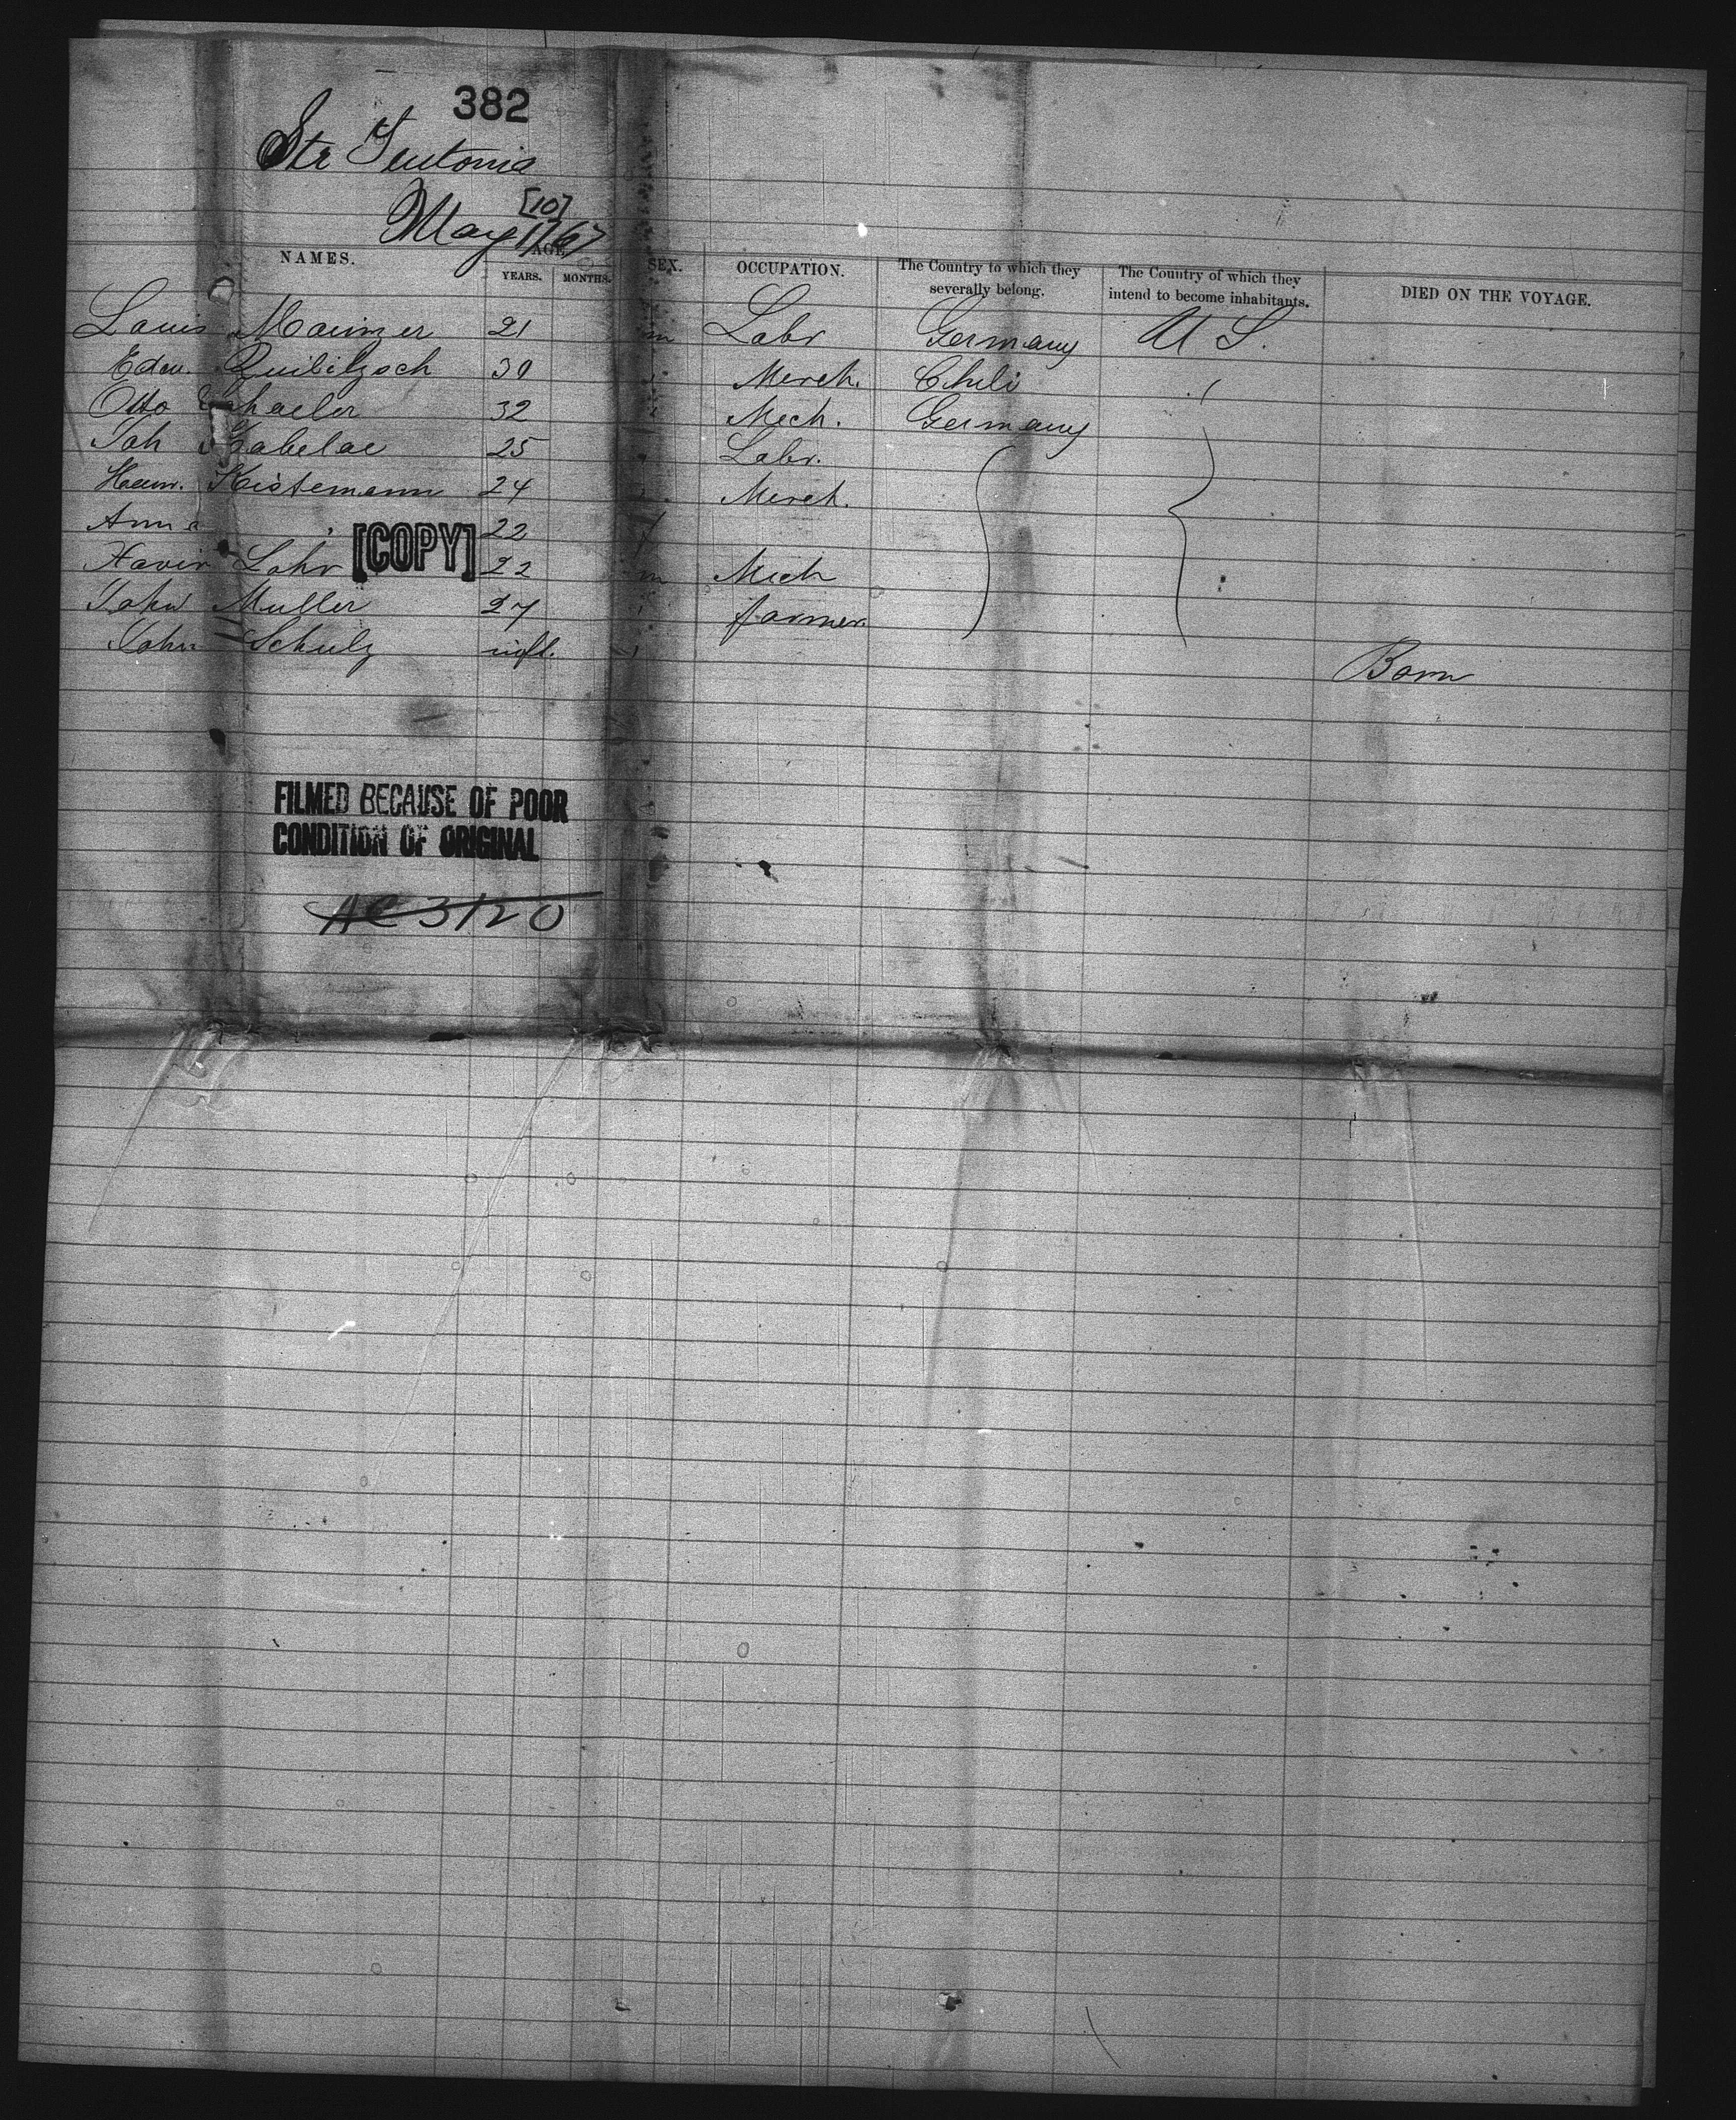 382
Str Teutonia
[10]
May 11/67
NAMES. AGE. YEARS. MONTHS. SEX. OCCUPATION. The Country to which they severally belong. The Country of which they intend to become inhabitants. DIED ON THE VOYAGE.
Louis 21 m Labr Germany U S.
Edw. 30 Merch. Chili
Otto 32 Mech. Germany
Joh 25 Labr.
Heinr. Kistemann 24 Merch.
Anna 22 f
[COPY]
Xavir Lohr 22 m Mech
John Muller 27 farmer
John Schulz inft. Born
FILMED BECAUSE OF POOR
CONDITION OF ORIGINAL
AC 3120